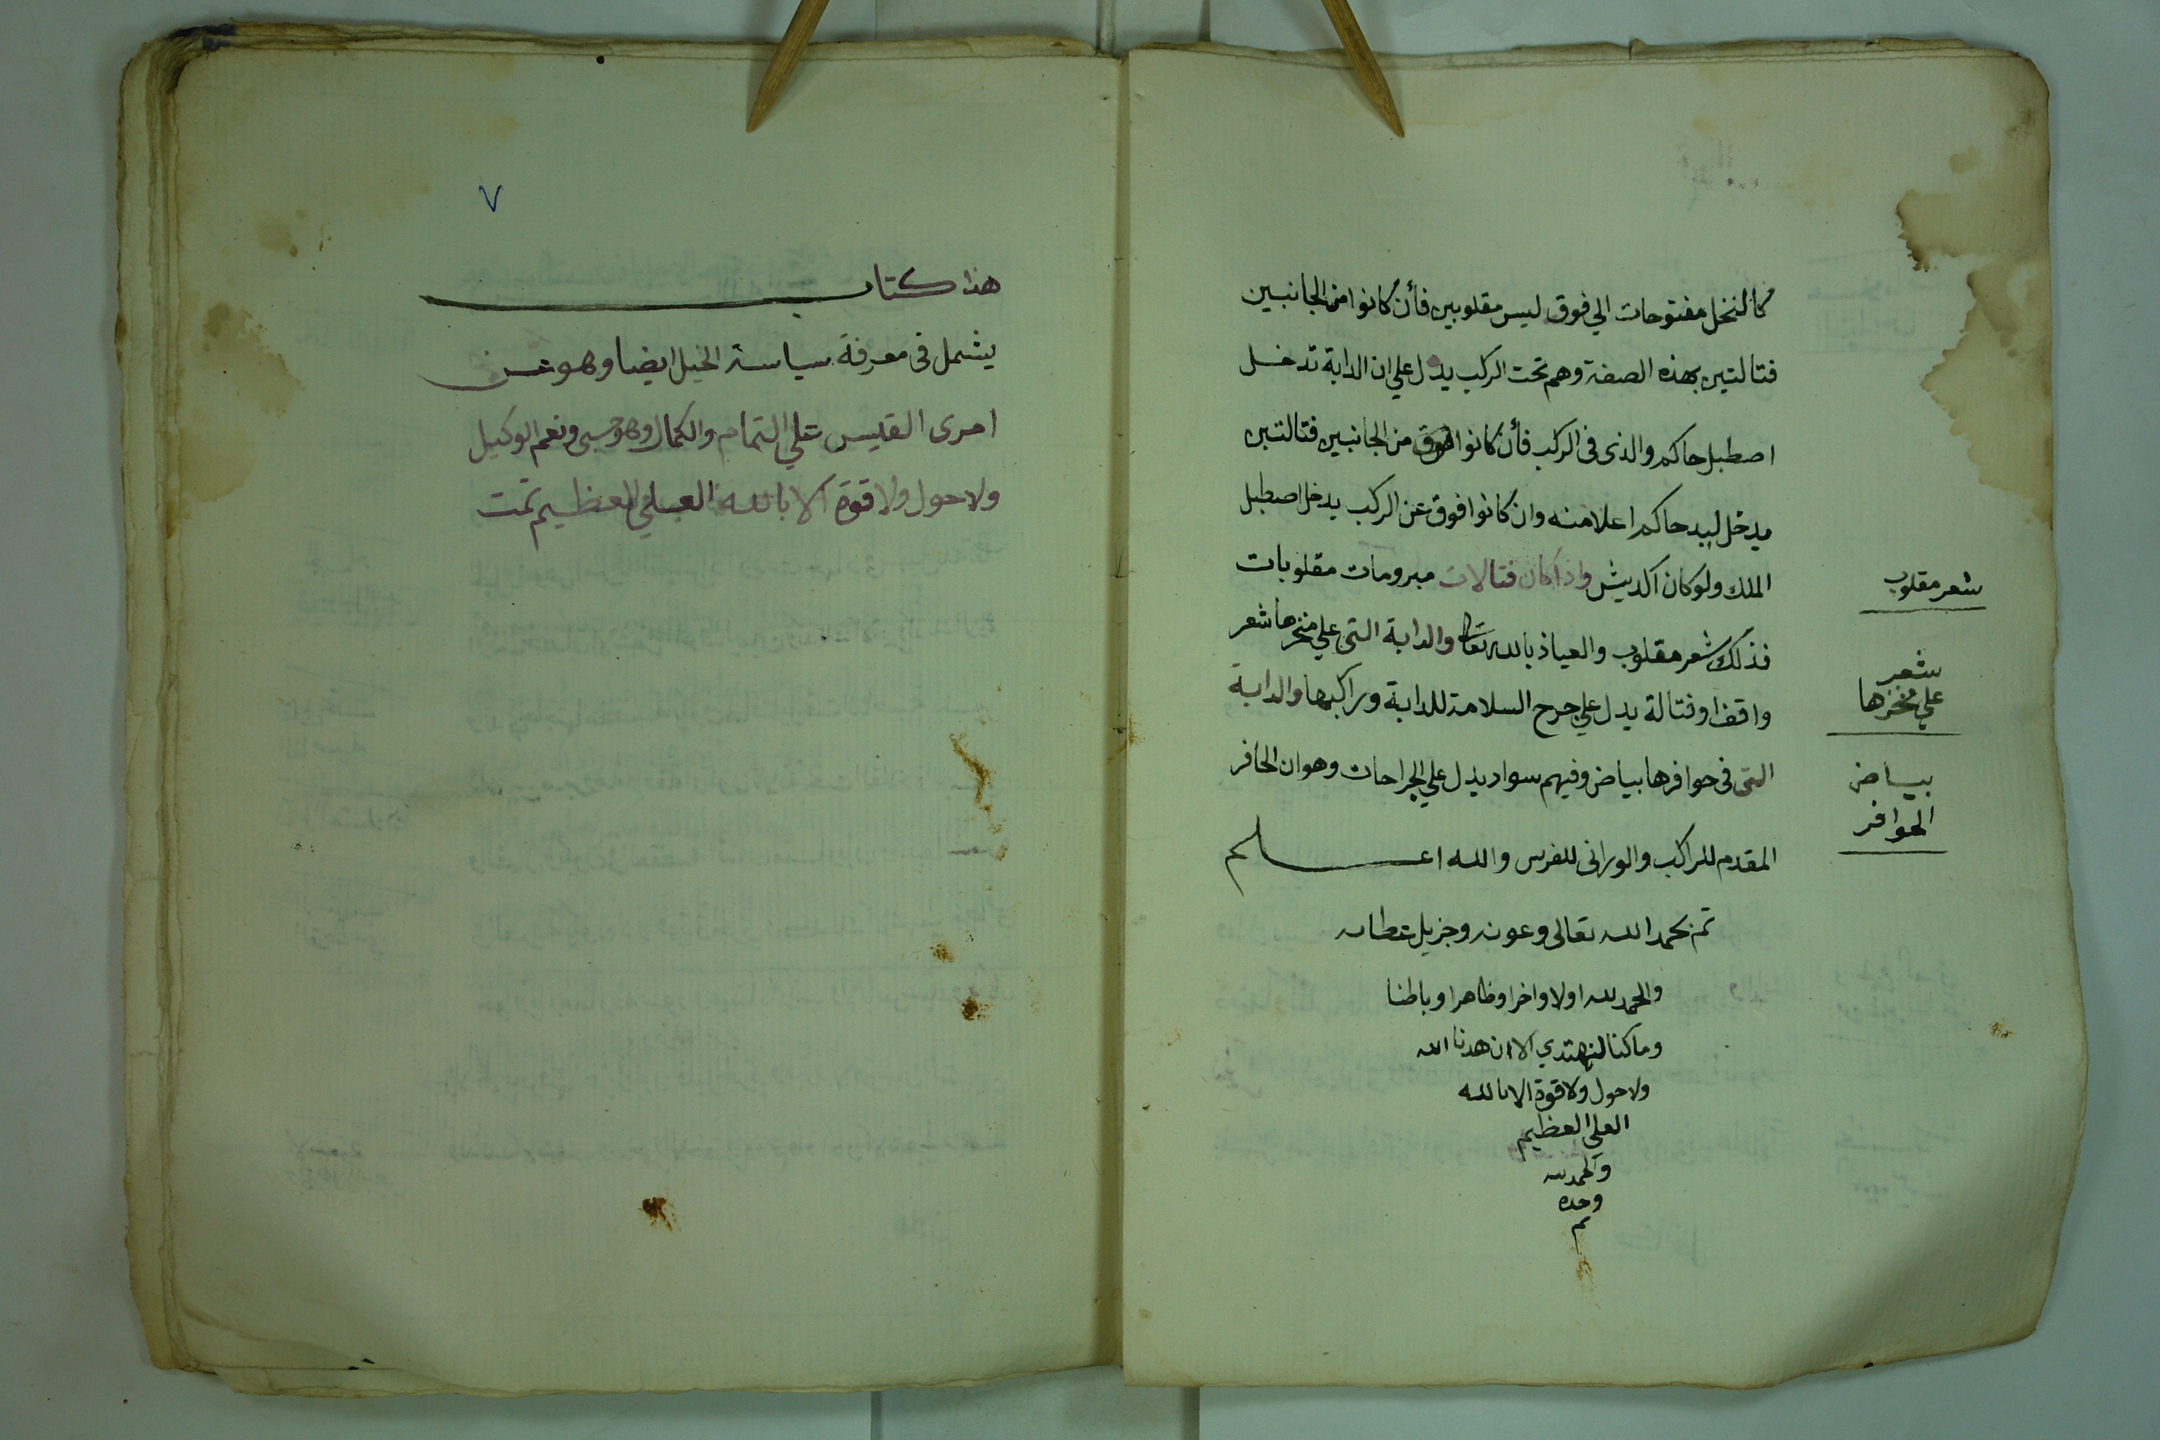 كالنخل مفتوحات الي فوق ليس مقلوبين فأن كانوا من الجانبين
فتالتين بهذه الصفة وهم تحت الركب يدل علي ان الدابة تدخل
اصطبل حاكم والذى فى الركب فأن كانوا فوق من الجانبين فتالتين
يدخل ليد حاكم اعلا منه وان كانوا فوق عن الركب يدخل اصطبل
الملك ولو كان اكديش واذا كان فتالات مبرومات مقلوبات
فذلك شعر مقلوب والعياذ بالله تعا والدابة التى علي منخرها شعر
واقف او فتالة يدل علي جرح السلامة للدابة وراكبها والدابة
التى فى حوافرها بياض وفيهم سواد يدل علي الجراحات وهو ان الحافر
المقدم للراكب والورانى للفرس والله اعلم
تم بحمد الله تعالى وعونه وجزيل عطاه
والحمد لله اولا واخرا وظاهرا وباطنا
وما كنا لنهتدي الا ان هدنا الله
ولا حول ولا قوة الا بالله
العلي العظيم
والحمد لله
وحده
تم
شعر مقلوب
شعر
علي منخرها
بياض
الحوافر
٧
هذا كتاب
يشمل فى معرفة سياسة الخيل ايضا وهو عن
امرى القيس علي التمام والكمال وهو حسبى ونعم الوكيل
ولا حول ولا قوة الا بالله العلي العظيم تمت